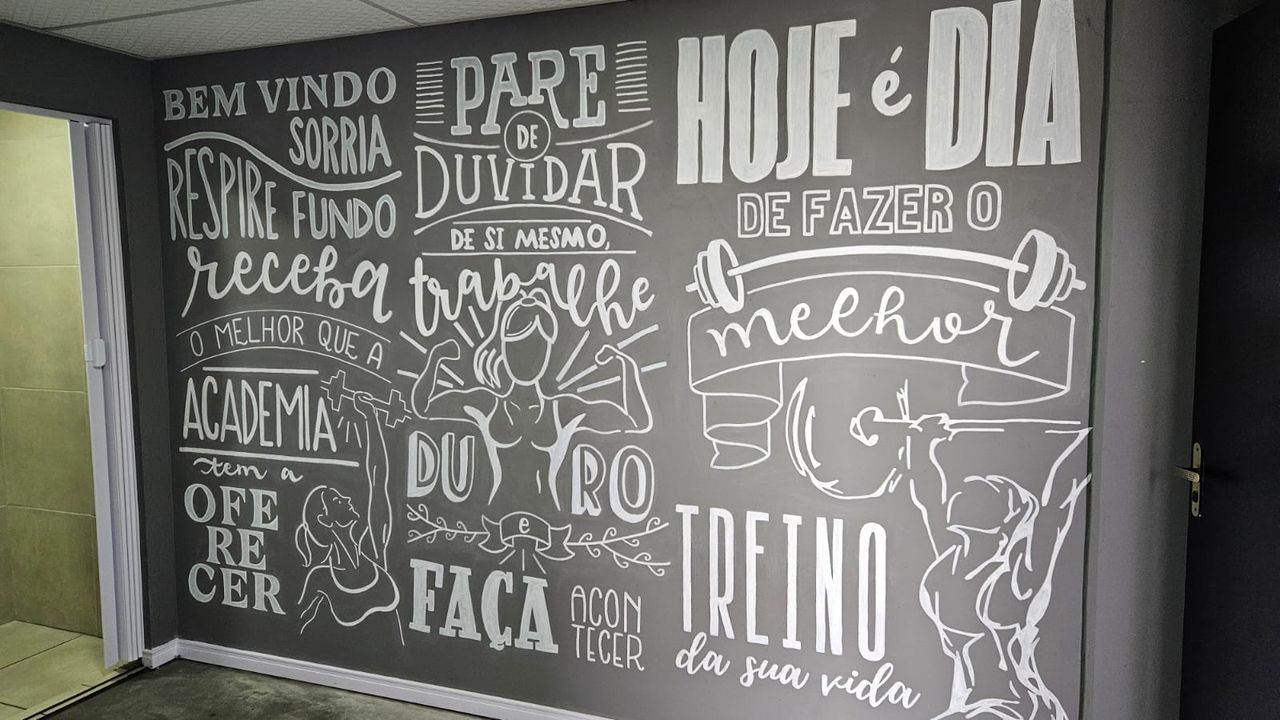 BEM VINDO
SORRIA
RESPIRE FUNDO
receba
O MELHOR QUE A
ACADEMIA
tem a
OFE
RE
CER
PARE
DE
DUVIDAR
DE SI MESMO,
trabalhe
DURO
e
FAÇA
ACON
TECER
HOJE é DIA
DE FAZER O
melhor
TREINO
da sua vida